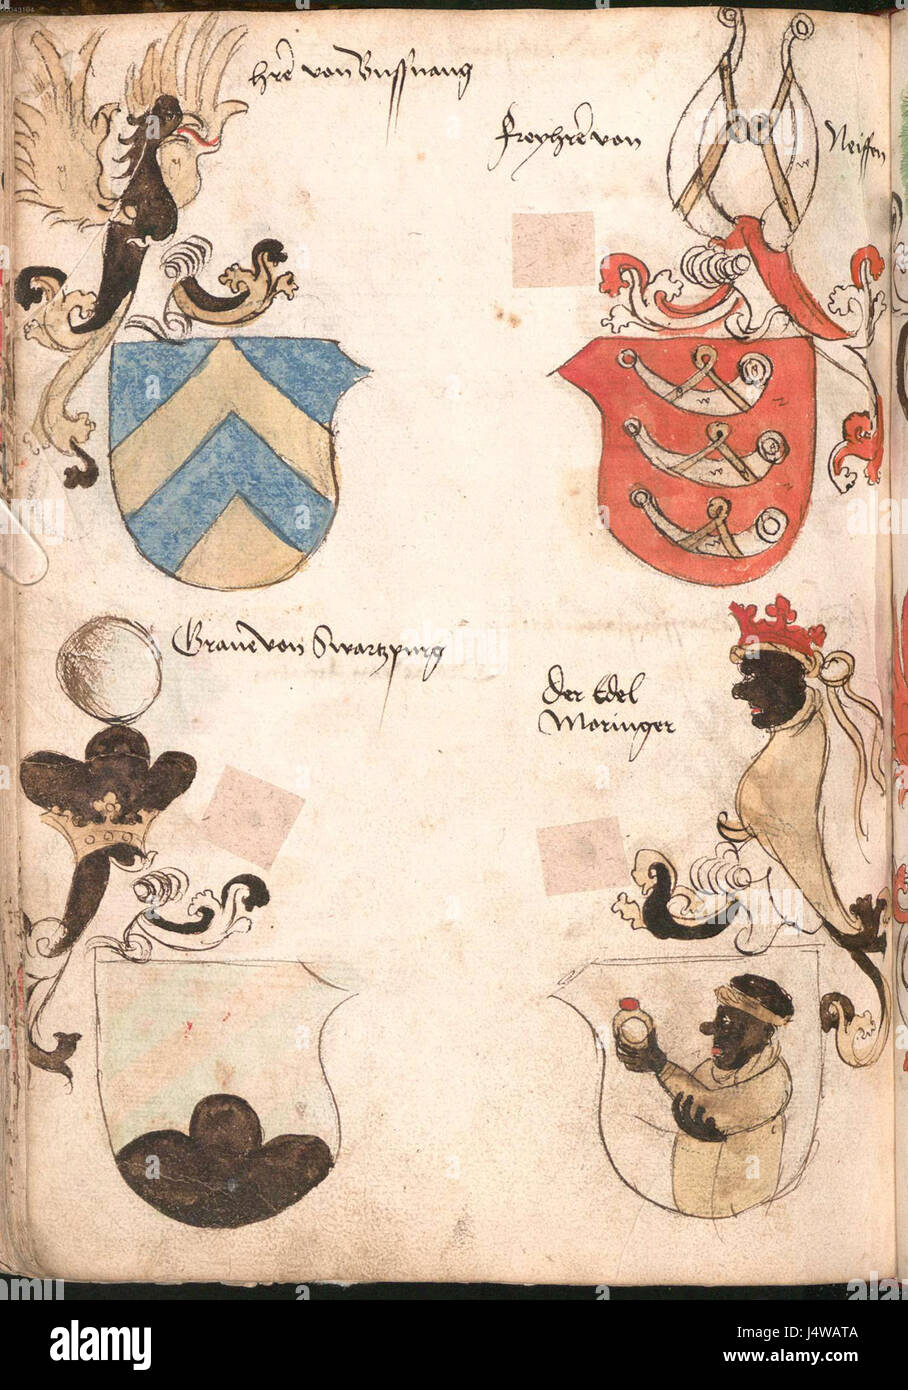 hre von Bussnang
Freyhre von Neiffen
Grave von Swartzpurg
Der Edel
Moringer
alamy stock photo
J4WATA
www.alamy.com